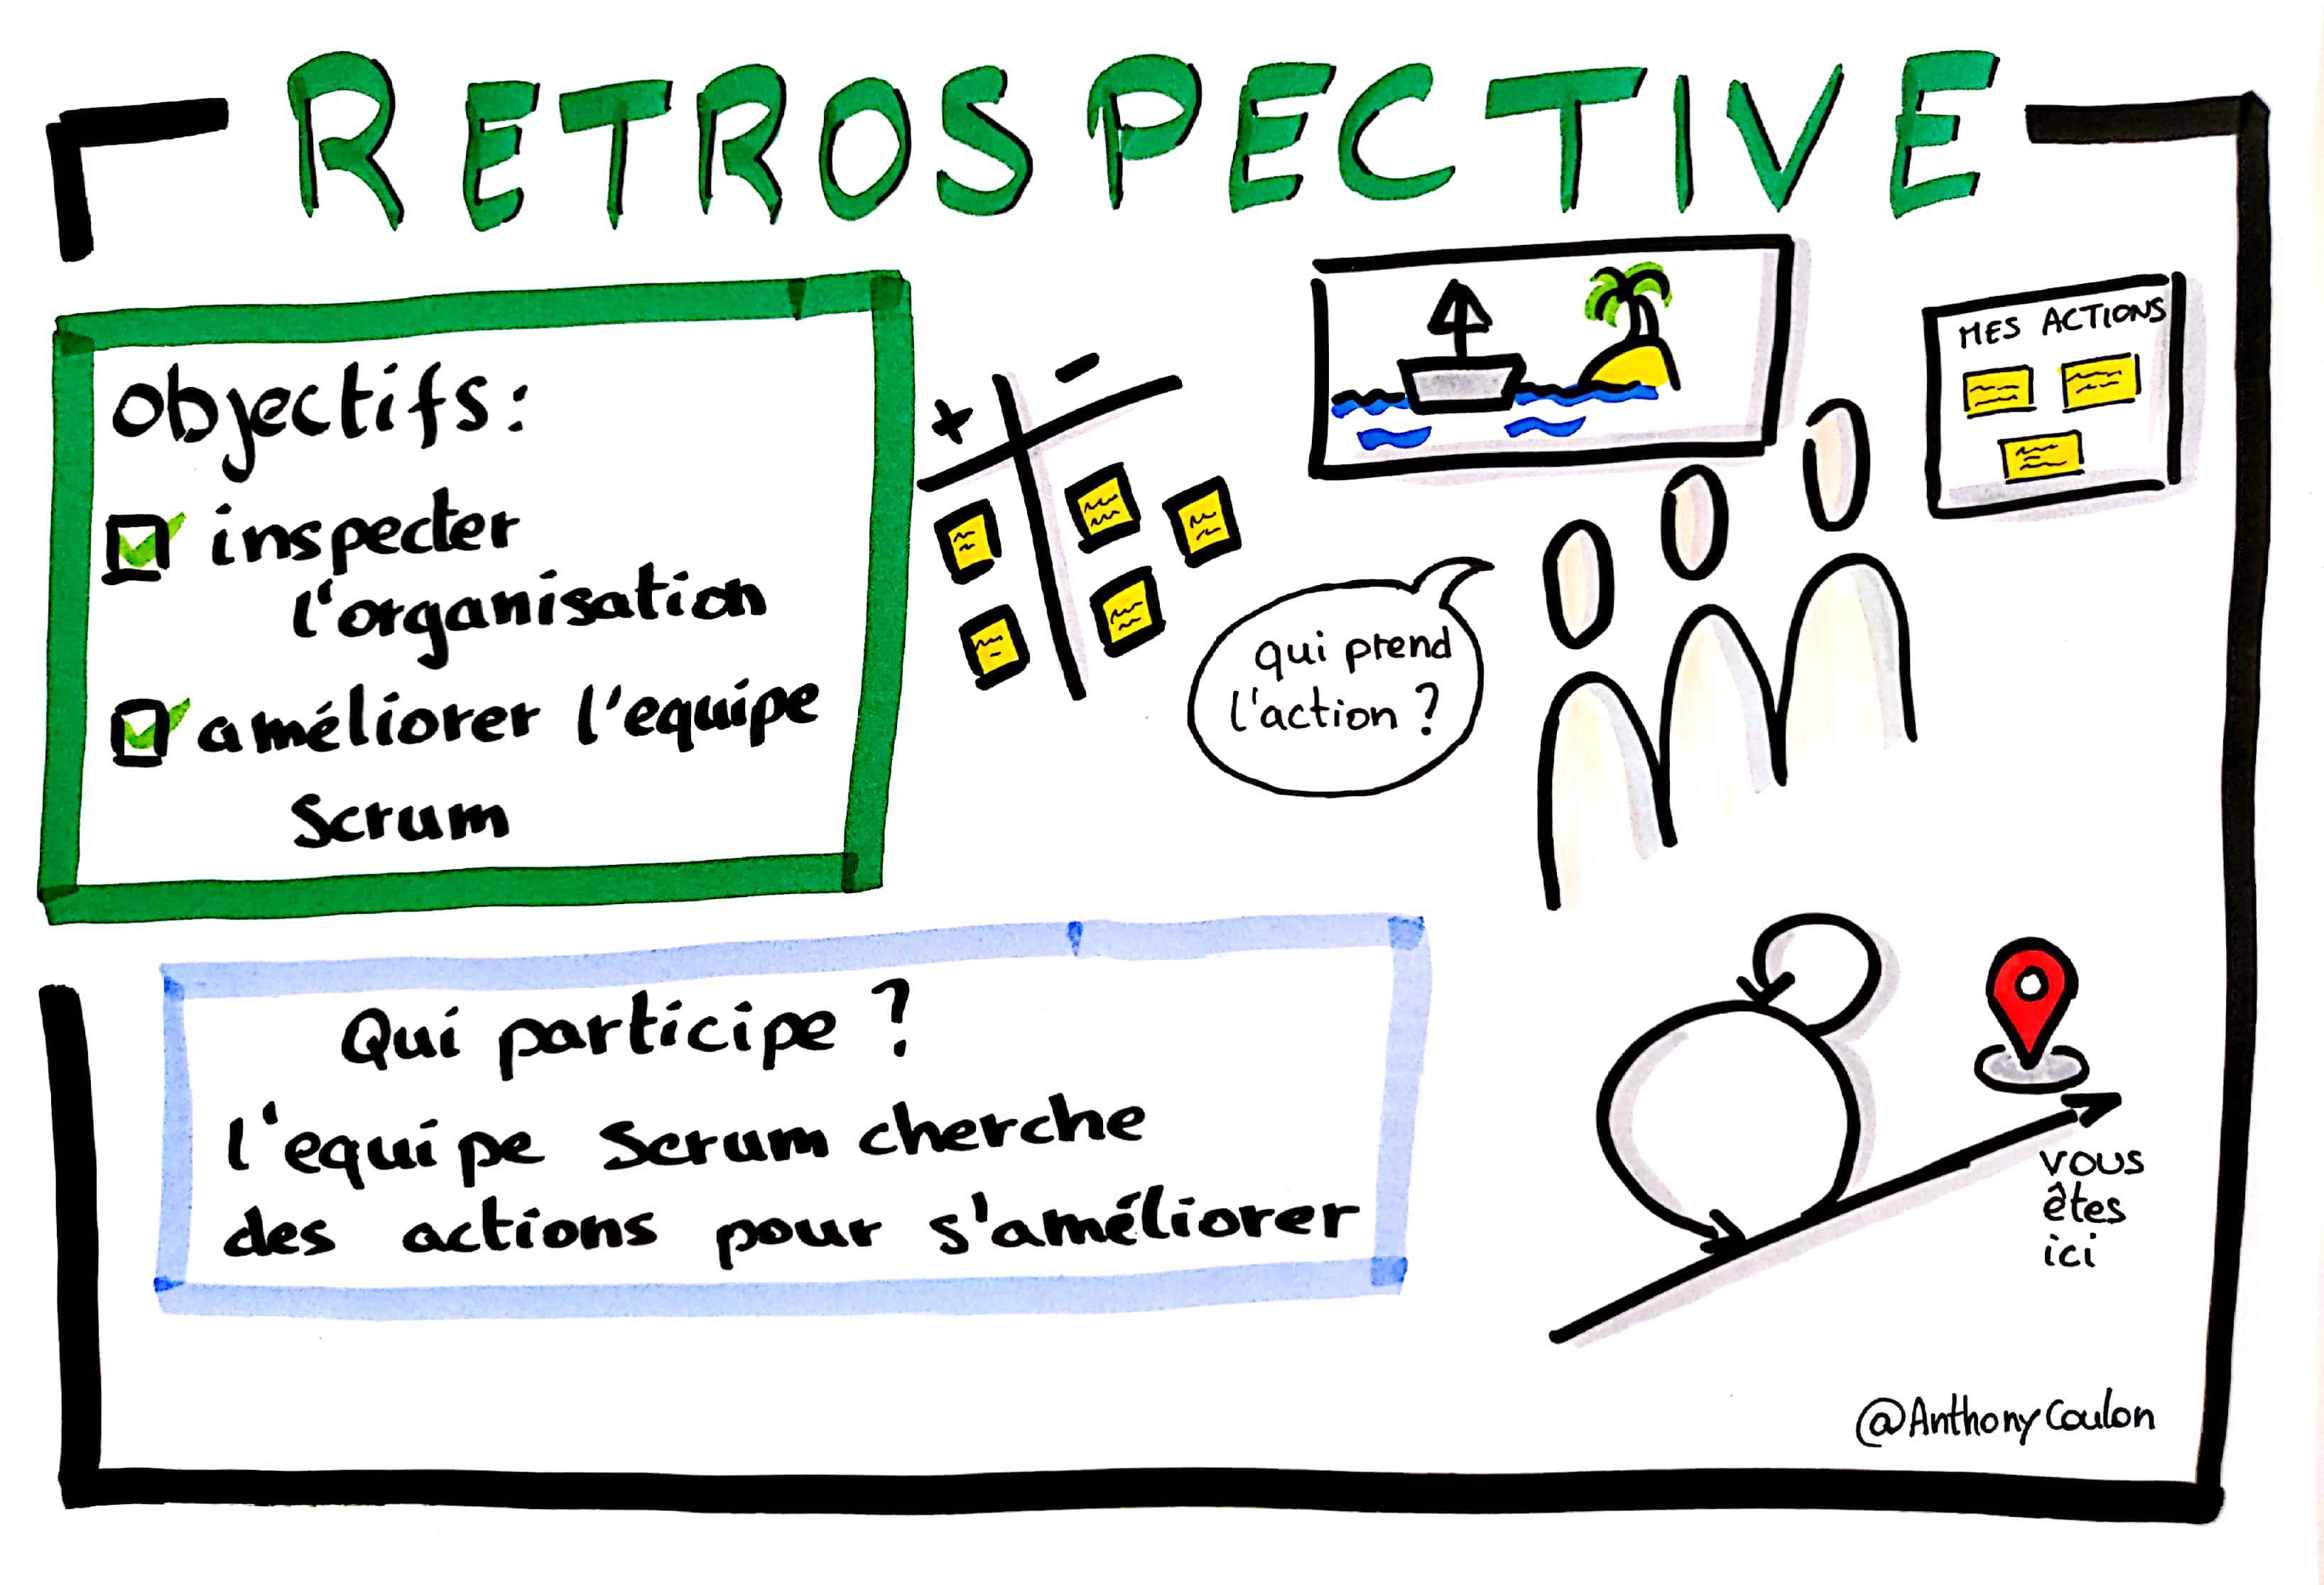 RETROSPECTIVE
objectifs:
inspecter
l'organisation
améliorer l'equipe
Scrum
+ -
MES ACTIONS
qui prend
l'action ?
Qui participe ?
l'equipe Scrum cherche
des actions pour s'améliorer
vous
êtes
ici
@AnthonyCoulon